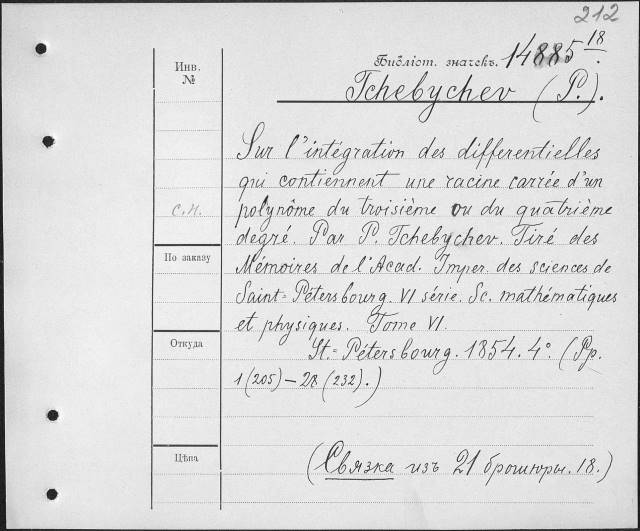 212
Инв.
№
Библіот. значекъ. 14885 18.
Tchebychev (P.).
Sur l'intégration des differentielles
qui contiennent une racine carrée d'un
с.н.
polynôme du troisième ou du quatrième
degré. Par P. Tchebychev. Tiré des
По заказу
Mémoires de l'Acad. Imper. des sciences de
Saint-Pétersbourg. VI série. Sc. mathématiques
et physiques. Tome VI.
Откуда
St.-Pétersbourg. 1854. 4°. (Pp.
1 (205) — 28 (232).)
Цѣна
(Связка изъ 21 брошюры. 18.)